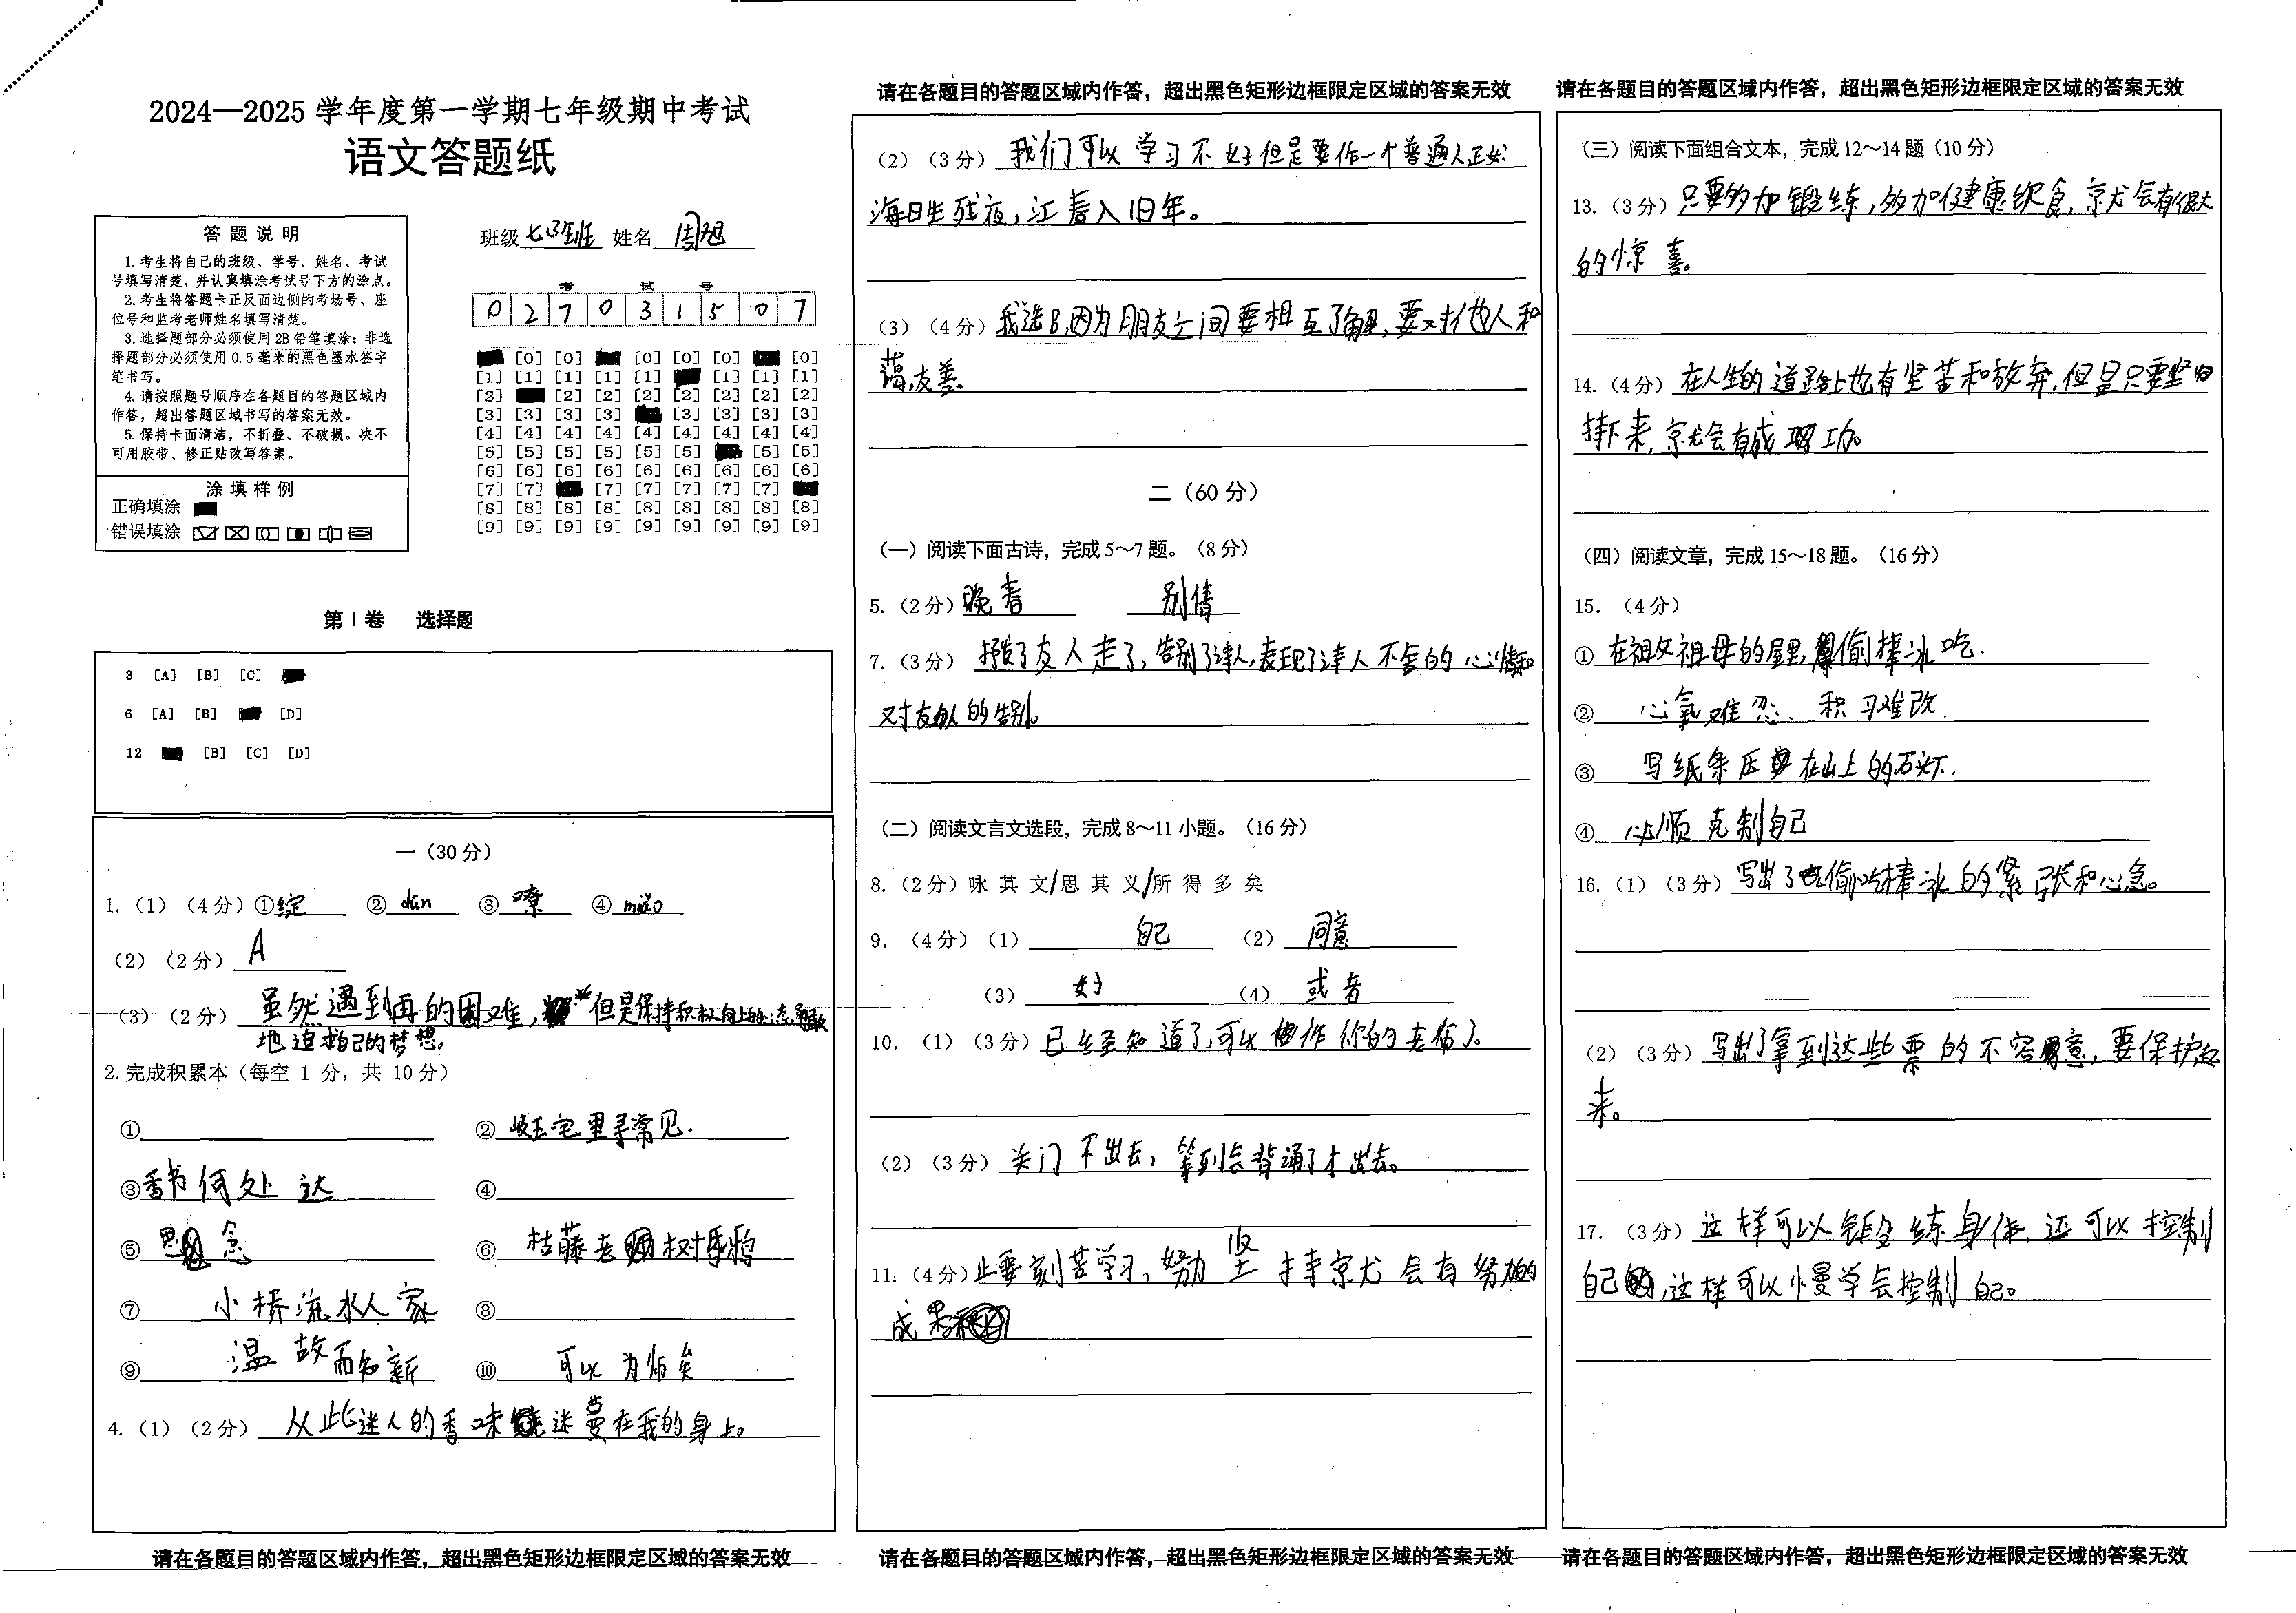 2024—2025 学年度第一学期七年级期中考试
语文答题纸
答 题 说 明
1.考生将自己的班级、学号、姓名、考试
号填写清楚，并认真填涂考试号下方的涂点。
2.考生将答题卡正反面边侧的考场号、座
位号和监考老师姓名填写清楚。
3.选择题部分必须使用 2B 铅笔填涂；非选
择题部分必须使用 0.5 毫米的黑色墨水签字
笔书写。
4.请按照题号顺序在各题目的答题区域内
作答，超出答题区域书写的答案无效。
5.保持卡面清洁，不折叠、不破损。决不
可用胶带、修正贴改写答案。
涂 填 样 例
正确填涂
错误填涂
班级 姓名 周旭
考 试 号
0 2 7 0 3 1 5 0 7
[0] [0] [0] [0] [0] [0]
[1] [1] [1] [1] [1] [1] [1] [1]
[2] [2] [2] [2] [2] [2] [2] [2]
[3] [3] [3] [3] [3] [3] [3] [3]
[4] [4] [4] [4] [4] [4] [4] [4] [4]
[5] [5] [5] [5] [5] [5] [5] [5]
[6] [6] [6] [6] [6] [6] [6] [6] [6]
[7] [7] [7] [7] [7] [7] [7]
[8] [8] [8] [8] [8] [8] [8] [8] [8]
[9] [9] [9] [9] [9] [9] [9] [9] [9]
第 I 卷 选择题
3 [A] [B] [C]
6 [A] [B] [D]
12 [B] [C] [D]
一（30 分）
1.（1）（4 分）①绽 ② dūn ③ 嘹 ④
（2）（2 分） A
（3）（2 分） 虽然遇到再的困难， 但是保持积极向上的
地追求自己的梦想。
2.完成积累本（每空 1 分，共 10 分）
①
② 岐王宅里寻常见.
③ 书何处达
④
⑤ 思念
⑥ 枯藤老树昏鸦
⑦ 小桥流水人家
⑧
⑨ 温故而知新
⑩ 可以为师矣
4.（1）（2 分） 从此迷人的香味 迷蔓在我的身上。
请在各题目的答题区域内作答，超出黑色矩形边框限定区域的答案无效
请在各题目的答题区域内作答，超出黑色矩形边框限定区域的答案无效
（2）（3 分） 我们可以学习不好但是要作一个普通人正如:
海日生残夜，江春入旧年。
（3）（4 分） 我选B,因为朋友之间要相互了解，要对他人和
蔼,友善。
二（60 分）
（一）阅读下面古诗，完成 5～7 题。（8 分）
5.（2 分） 晚春 别情
7.（3 分） 抒发了友人走了，告别了诗人,表现了诗人不舍的心情和
对友人的告别。
（二）阅读文言文选段，完成 8～11 小题。（16 分）
8.（2 分）咏 其 文/思 其 义/所 得 多 矣
9.（4 分）（1） 自己 （2） 同意
（3） 好 （4） 或者
10.（1）（3 分） 已经知道了,可以 作你的老师了。
（2）（3 分） 关门不出去，等到会背诵了才出去。
11.（4 分） 止要刻苦学习，努力坚持京尤会有努力的
成果
请在各题目的答题区域内作答，超出黑色矩形边框限定区域的答案无效
请在各题目的答题区域内作答，超出黑色矩形边框限定区域的答案无效
（三）阅读下面组合文本，完成 12～14 题（10 分）
13.（3 分） 只要多加锻练，多加健康饮食，京尤会有很大
的惊喜。
14.（4 分） 在人生的道路上也有坚苦和放弃，但是只要坚
持下来，京尤会有成功。
（四）阅读文章，完成 15～18 题。（16 分）
15.（4 分）
① 在祖父祖母的屋里, 偷棒冰吃.
② 心 难忍、积习难改.
③ 写纸条压 在山上的石头下.
④ 必须克制自己
16.（1）（3 分） 写出了 偷吃棒冰的紧张和心急。
（2）（3 分） 写出了拿到这些票的不容易意，要保护起
来。
17.（3 分） 这样可以锻练身体，还可以控制
自己,这样可以慢慢学会控制自己。
请在各题目的答题区域内作答，超出黑色矩形边框限定区域的答案无效